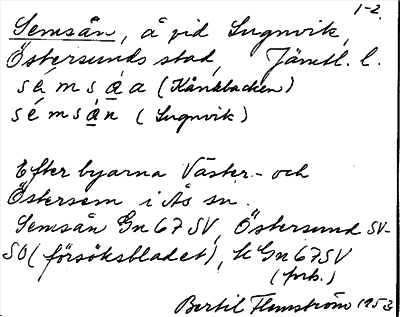 1-2.
Semsån, å vid Lugnvik,
Östersunds stad, Jämtl. l.
sé m s á a (Kånkbacken)
sé m s á n (Lugnvik)
Efter byarna Väster- och
Östersem i Ås sn.
Semsån Gn 67 SV, Östersund SV-
SO (försöksbladet), k Gn 67 SV
Bertil Flemström 1953